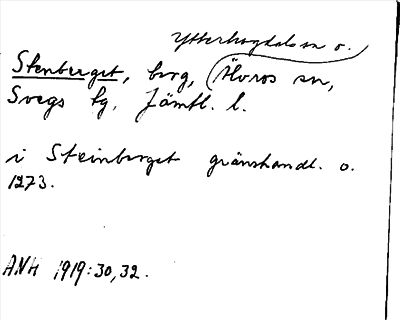 Ytterhogdals sn o.
Stenberget, berg, (Älvros sn,
Svegs tg, Jämtl. l.
i Steinberget gränshandl. o.
1273.
ANH 1919:30,32.